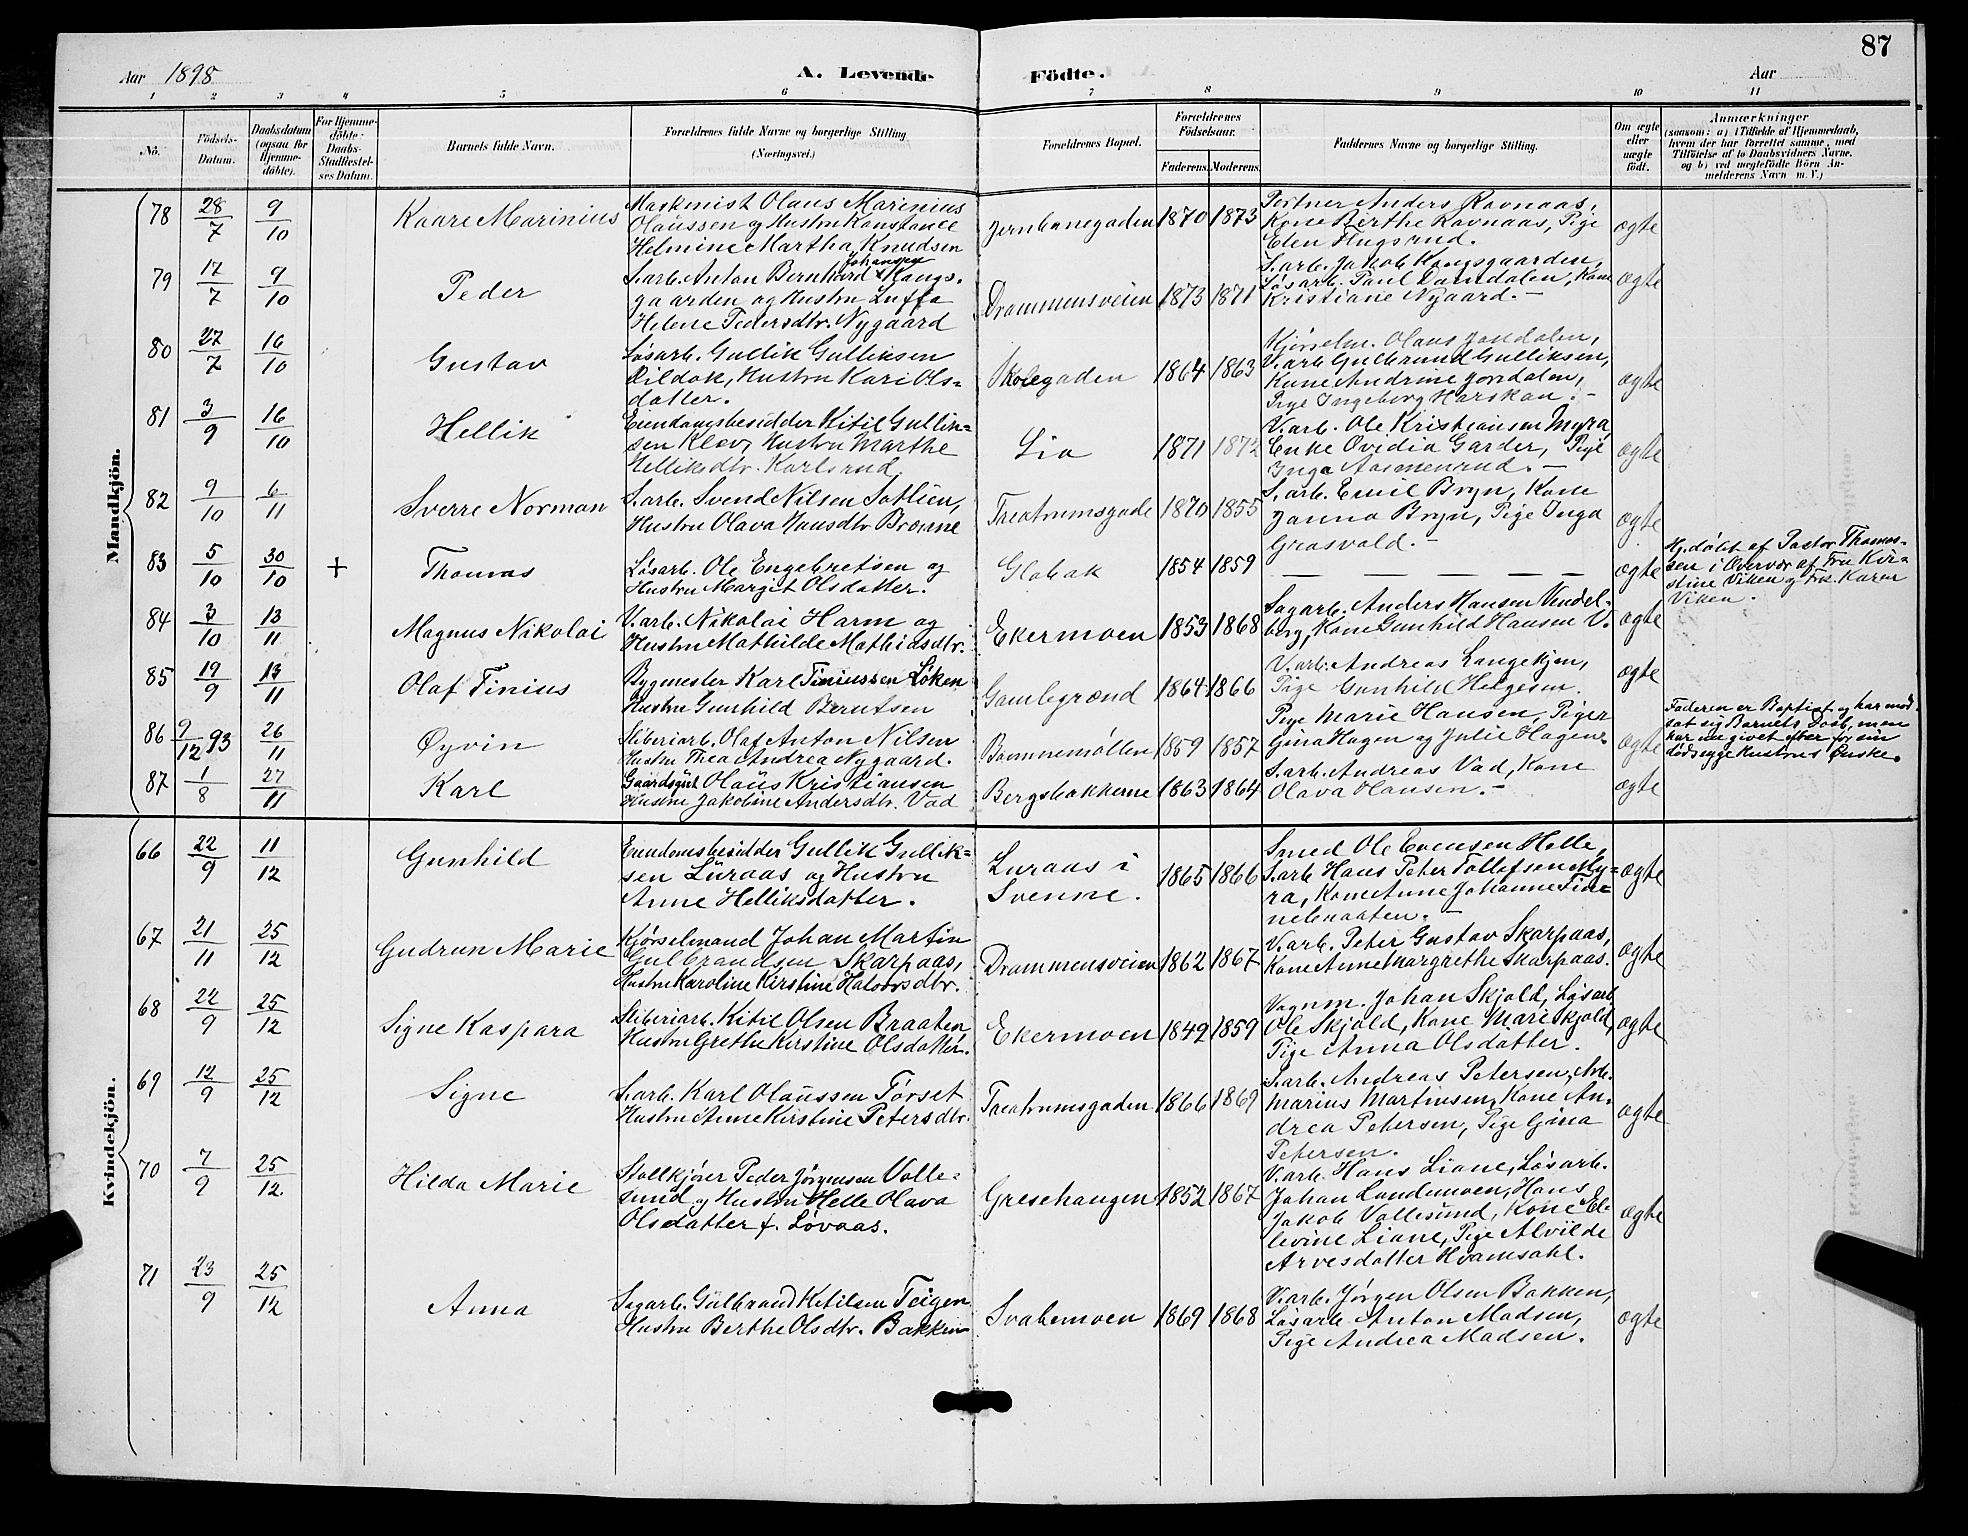 87
Aar 1898
A. Levende Födte.
Aar
1 2 3 4 5 6 7 8 9 10 11
No.
Födsels-
Datum.
Daabsdatum
(ogsaa for
Hjemme-
døbte).
For Hjemme-
døbte:
Daabs-
Stadfæstel-
ses Datum.
Barnets fulde Navn.
Forældrenes fulde Navne og borgerlige Stilling
(Næringsvei.)
Forældrenes Bopæl.
Forældrenes
Födselsaar.
Faderens. Moderens.
Faddernes Navne og borgerlige Stilling.
Om ægte
eller
uægte
født.
Anmærkninger
(saasom: a) i Tilfælde af Hjemmedaab,
hvem der har forrettet samme, med
Tilföielse af to Daabsvidners Navne.
og b) ved uægtefödte Börn An-
melderens Navn m. V.)
Mandkjön.
78 28/7 9/10 Kaare Marinius
Maskinist Olaus Marinius
Olaussen og Hustru Konstance
Helmine Martha Knudsen
Jernbanegaden 1870 1873
Portner Anders Ravnaas,
Kone Berthe Ravnaas, Pige
Elen Flugsrud.
ægte
79 17/7 9/10 Peder
Johansen
S.arb. Anton Bernhard Kongs-
gaarden og Hustru Luffa
Helene Pedersdtr. Nygaard
Drammensveien 1873 1871
S.arb. Jakob Kongsgaarden,
Løsarb. Paul Damdalen, Kone
Kristiane Nygaard. —
ægte
80 27/7 16/10 Gustav
Løsarb. Gullik Gulliksen
Dildok, Hustru Kari Ols-
datter.
Skolegaden 1864 1863
Kjørselm. Olaus Jondalen,
V.arb. Gulbrand Gulliksen,
Kone Andrine Jondalen,
Pige Ingeborg Horskan. —
ægte
81 3/9 16/10 Hellik
Eiendomsbesidder Kitil Gullik-
sen Klev, Hustru Marthe
Helliksdtr. Karlsrud.
Lia 1871 1872
V.arb. Ole Kristiansen Myra
Enke Ovidia Garder, Pige
Inga Aasmenrud. —
ægte
82 9/10 6/11 Sverre Norman
S.arb. Svend Nilsen Sotlien,
Hustru Olava Hansdtr Brovne
Theatrumsgade 1870 1855
S.arb. Emil Bryn, Kone
Janna Bryn, Pige Inga
Grosvold. —
ægte
83 5/10 30/10 + Thomas
Løsarb. Ole Engebretsen og
Hustru Marget Olsdatter.
Glabak 1854 1859
— — — — — —
ægte
Hj.døbt af Pastor Thomas-
sen i Overvær af Fru Kir-
stine Viken og Frk. Karen
Viken.
84 3/10 13/11 Magnus Nikolai
V.arb. Nikolai Harm og
Hustru Mathilde Mathiasdtr.
Ekermoen 1853 1868
Sagarb. Anders Hansen Vindel-
borg, Kone Gunhild Hansen V.
ægte
85 19/9 13/11 Olaf Tinius
Bygmester Karl Tiniussen Løken
Hustru Gunhild Berntsen
Gamlegrænd 1864 1866
V.arb. Andreas Langekjen,
Pige Gunhild Helgesen.
ægte
86 9/12 93 26/11 Øyvin
Sliberiarb. Olaf Anton Nilsen
Hustru Thea Andrea Nygaard.
Brommemøllen 1859 1857
Pige Marie Hansen, Piger
Gina Hagen og Julie Hagen.
ægte
Faderen er Baptist og har mod-
sat sig Barnets Daab, men
har nu givet efter for sin
dødssyge Hustrus Ønske.
87 1/8 27/11 Karl
Gaardsgut Olaus Kristiansen
Hustru Jakobine Andersdtr. Vad
Bergsbakkerne 1863 1864
S.arb. Andreas Vad, Kone
Olava Olausen. —
ægte
Kvindekjön.
66 22/9 11/12 Gunhild
Eiendomsbesidder Gullik Gullik-
sen Luraas og Hustru
Anne Helliksdatter.
Luraas i
Svenne.
1865 1866
Smed Ole Evensen Helle,
S.arb. Hans Peter Tollefsen My-
ra, Kone Anne Johanne Fin-
nebraaten. —
ægte
67 21/11 25/12 Gudrun Marie
Kjørselmand Johan Martin
Gulbrandsen Skarpaas,
Hustru Karoline Kirstine Halvorsdtr.
Drammensveien 1862 1867
V.arb. Peter Gustav Skarpaas,
Kone Anne Margrethe Skarpaas.
ægte
68 22/9 25/12 Signe Kaspara
Sliberiarb. Kitil Olsen Braaten
Hustru Grethe Kirstine Olsdatter.
Ekermoen 1849 1859
Vognm. Johan Skjold, Løsarb.
Ole Skjold, Kone Mari Skjold,
Pige Anna Olsdatter.
ægte
69 12/9 25/12 Signe
S.arb. Karl Olaussen Tørset
Hustru Anne Kirstine Petersdtr.
Theatrumsgaden 1866 1869
S.arb. Andreas Petersen, Arb.
Marius Martinsen, Kone An-
drea Petersen, Pige Gina
Petersen.
ægte
70 7/9 25/12 Hilda Marie
Stallkjører Peder Jørgensen Volle-
sund og Hustru Helle Olava
Olsdatter f. Løvaas.
Gresehaugen 1852 1867
V.arb. Hans Liane, Løsarb.
Johan Lundemoen, Hans
Jakob Vollesund, Kone El-
levine Liane, Pige Alvilde
Arvesdatter Hvamsahl.
ægte
71 23/9 25/12 Anna
Sagarb. Gulbrand Ketilsen Teigen
Hustru Berthe Olsdtr. Bakken
Svabemoen 1869 1868
V.arb. Jørgen Olsen Bakken,
Løsarb. Anton Madsen,
Pige Andrea Madsen.
ægte